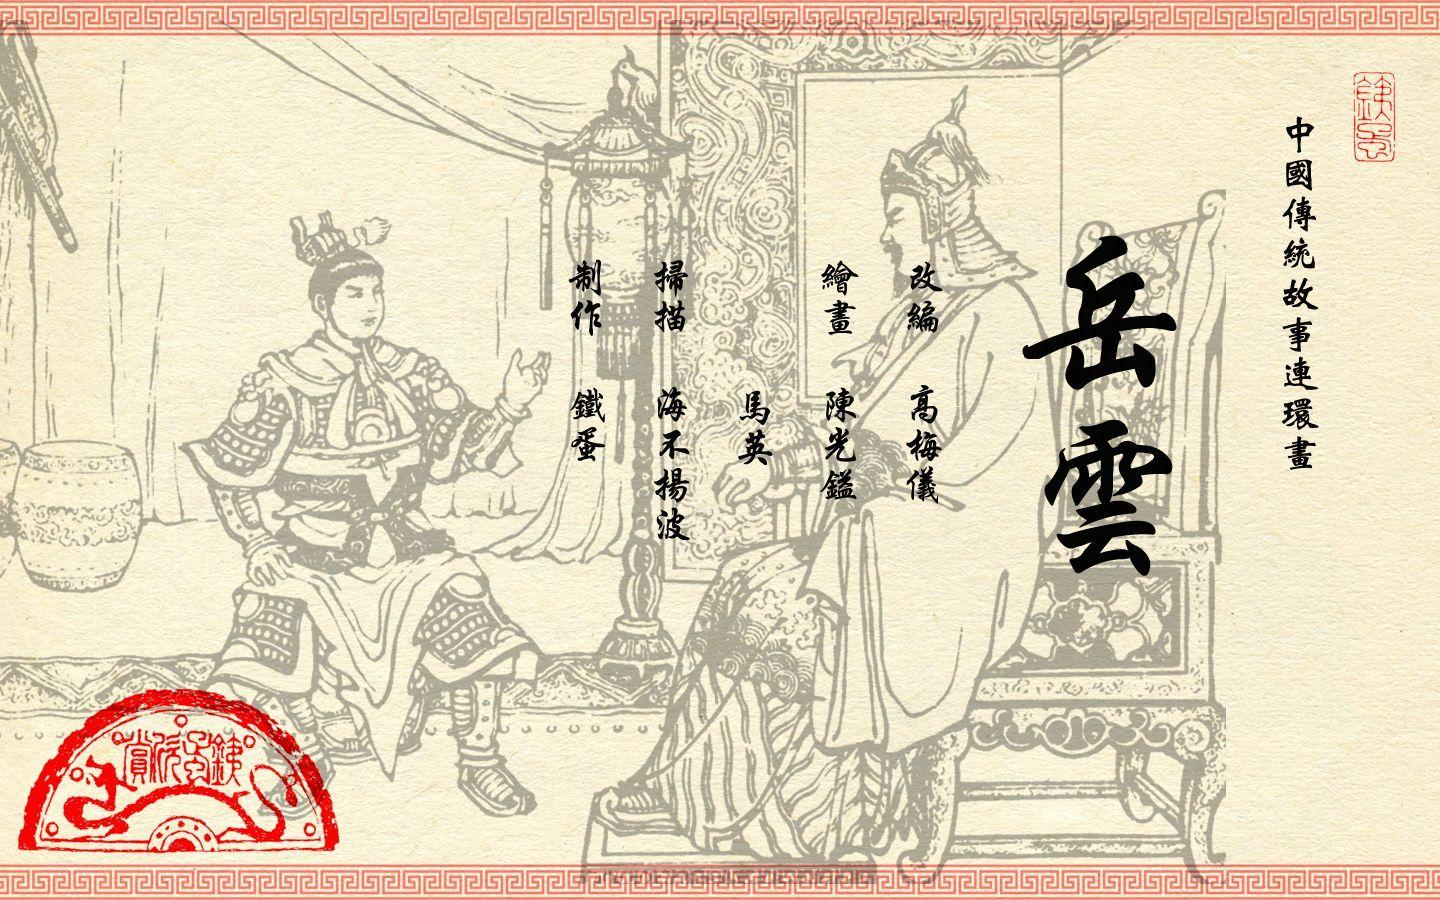 中國傳統故事連環畫
岳雲
改編 高梅儀
繪畫 陳光鎰
馬英
掃描 海不揚波
制作 鐵蛋